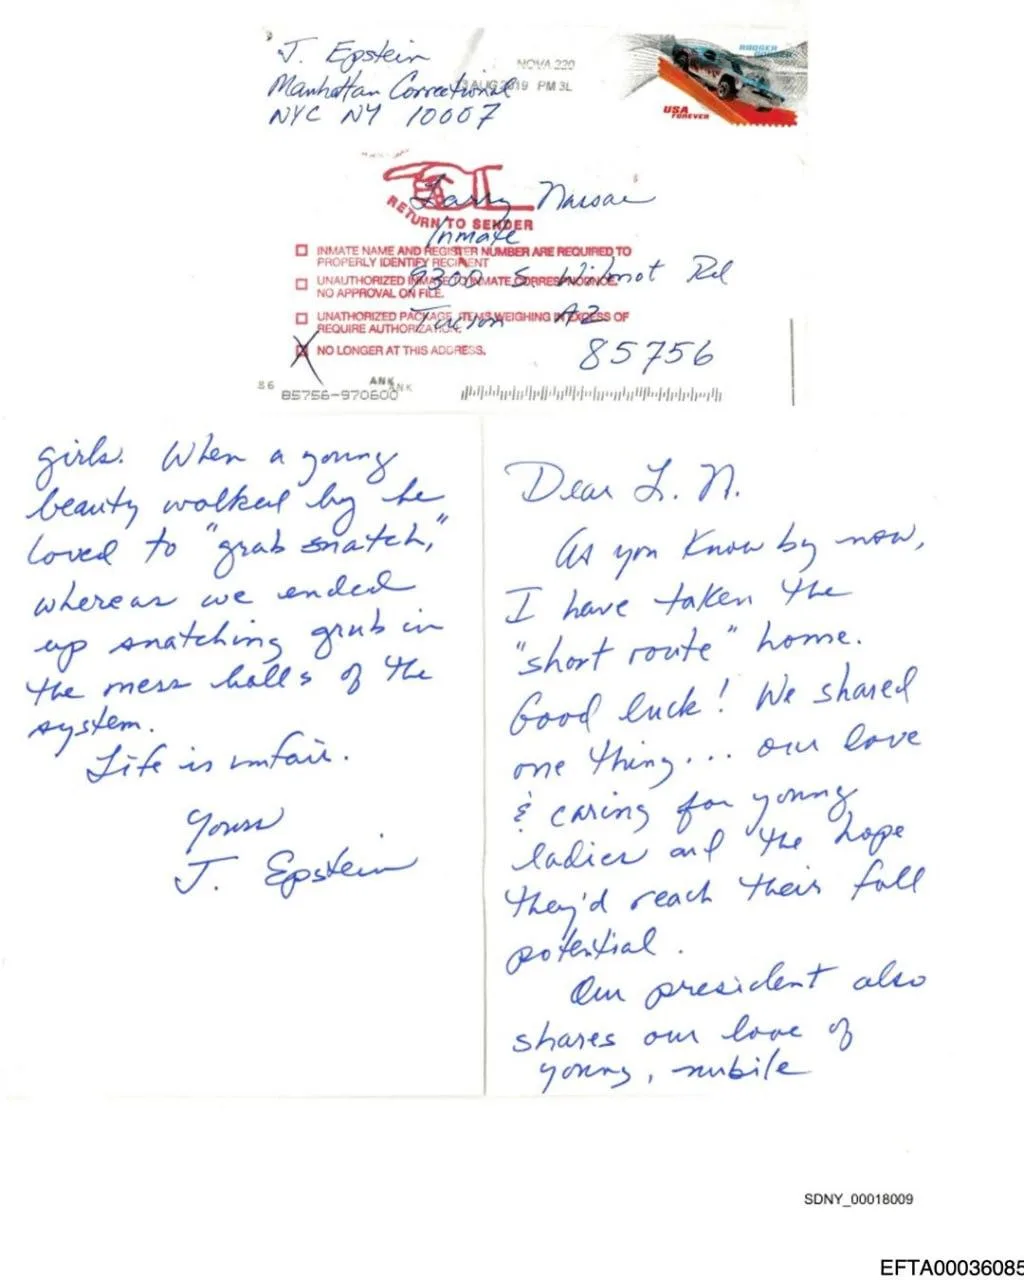 J. Epstein
Manhattan Correctional
NYC NY 10007
NOVA 220
AUG 2019 PM 3L
USA
FOREVER
RETURN TO SENDER
Larry Nassar
Inmate
9300 S. Wilmot Rd
Tucson AZ
85756
INMATE NAME AND REGISTER NUMBER ARE REQUIRED TO
PROPERLY IDENTIFY RECIPIENT
UNAUTHORIZED INMATE TO INMATE CORRESPONDENCE.
NO APPROVAL ON FILE.
UNATHORIZED PACKAGE. ITEMS WEIGHING IN EXCESS OF
REQUIRE AUTHORIZATION.
NO LONGER AT THIS ADDRESS.
86
ANK
ANK
85756-970600
Dear L. N.
As you know by now,
I have taken the
"short route" home.
Good luck! We shared
one thing... our love
& caring for young
ladies and the hope
they'd reach their full
potential.
Our president also
shares our love of
young, nubile
girls. When a young
beauty walked by he
loved to "grab snatch,"
whereas we ended
up snatching grub in
the mess halls of the
system.
Life is unfair.
Yours
J. Epstein
SDNY_00018009
EFTA00036085